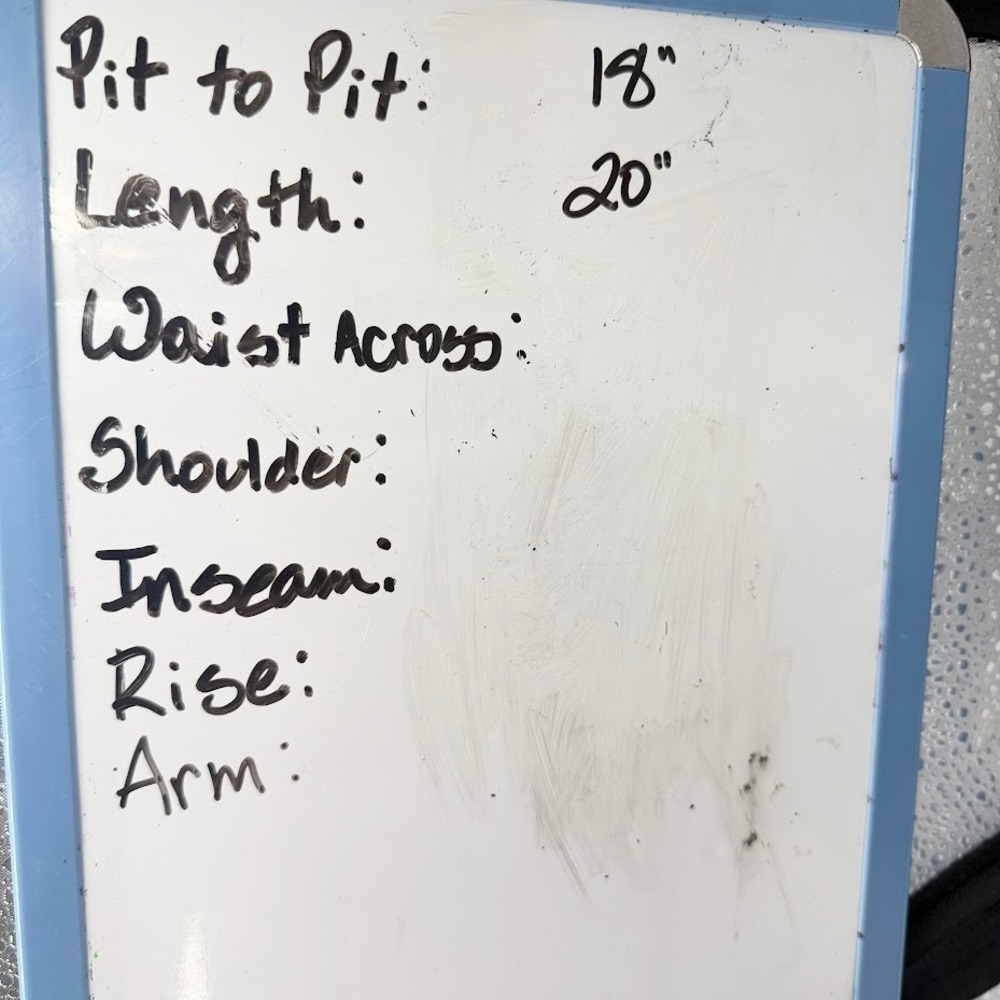 Pit to Pit: 18"
Length: 20"
Waist Across:
Shoulder:
Inseam:
Rise:
Arm: